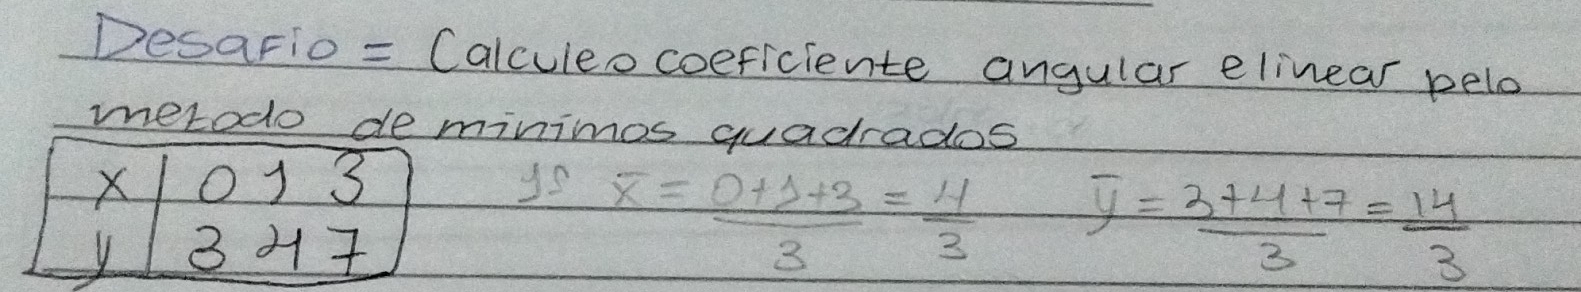 Desafio = Calcule o coeficiente angular e linear pelo
metodo de minimos quadrados
x | 0 1 3
y | 3 4 7
1º x̄ = 0+1+3/3 = 4/3 ȳ = 3+4+7/3 = 14/3